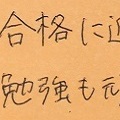 合格に近
勉強も頑